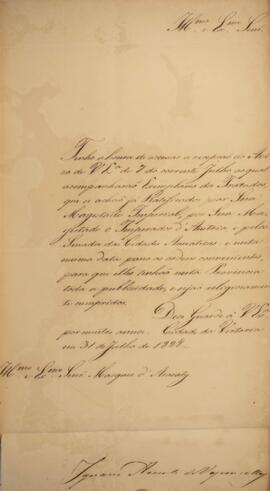 Illmo e Exmo Senr.
Tenho a honra de accusar a recepção do Avi-
zo de V. Exa. de 7 do corrente Julho, ao qual
acompanharão Exemplares de Tratados,
que se achão já Ratificados por Sua
Magestade Imperial, por Sua Ma-
gestade o Imperador d'Austria e pelos
Senado das Cidades Anseaticas; e nesta
mesma data passo as ordens convenientes,
para que elles tenhão nesta Provincia
toda a publicidade, e sejão religiosamen-
te cumpridos.
Deos Guarde a V. Exa.
por muitos annos. Cidade da Victoria
em 31 de Julho de 1828.
Illmo e Exmo Senr. Marquez d'Aracaty
Ignacio Accioli de Vasconcellos